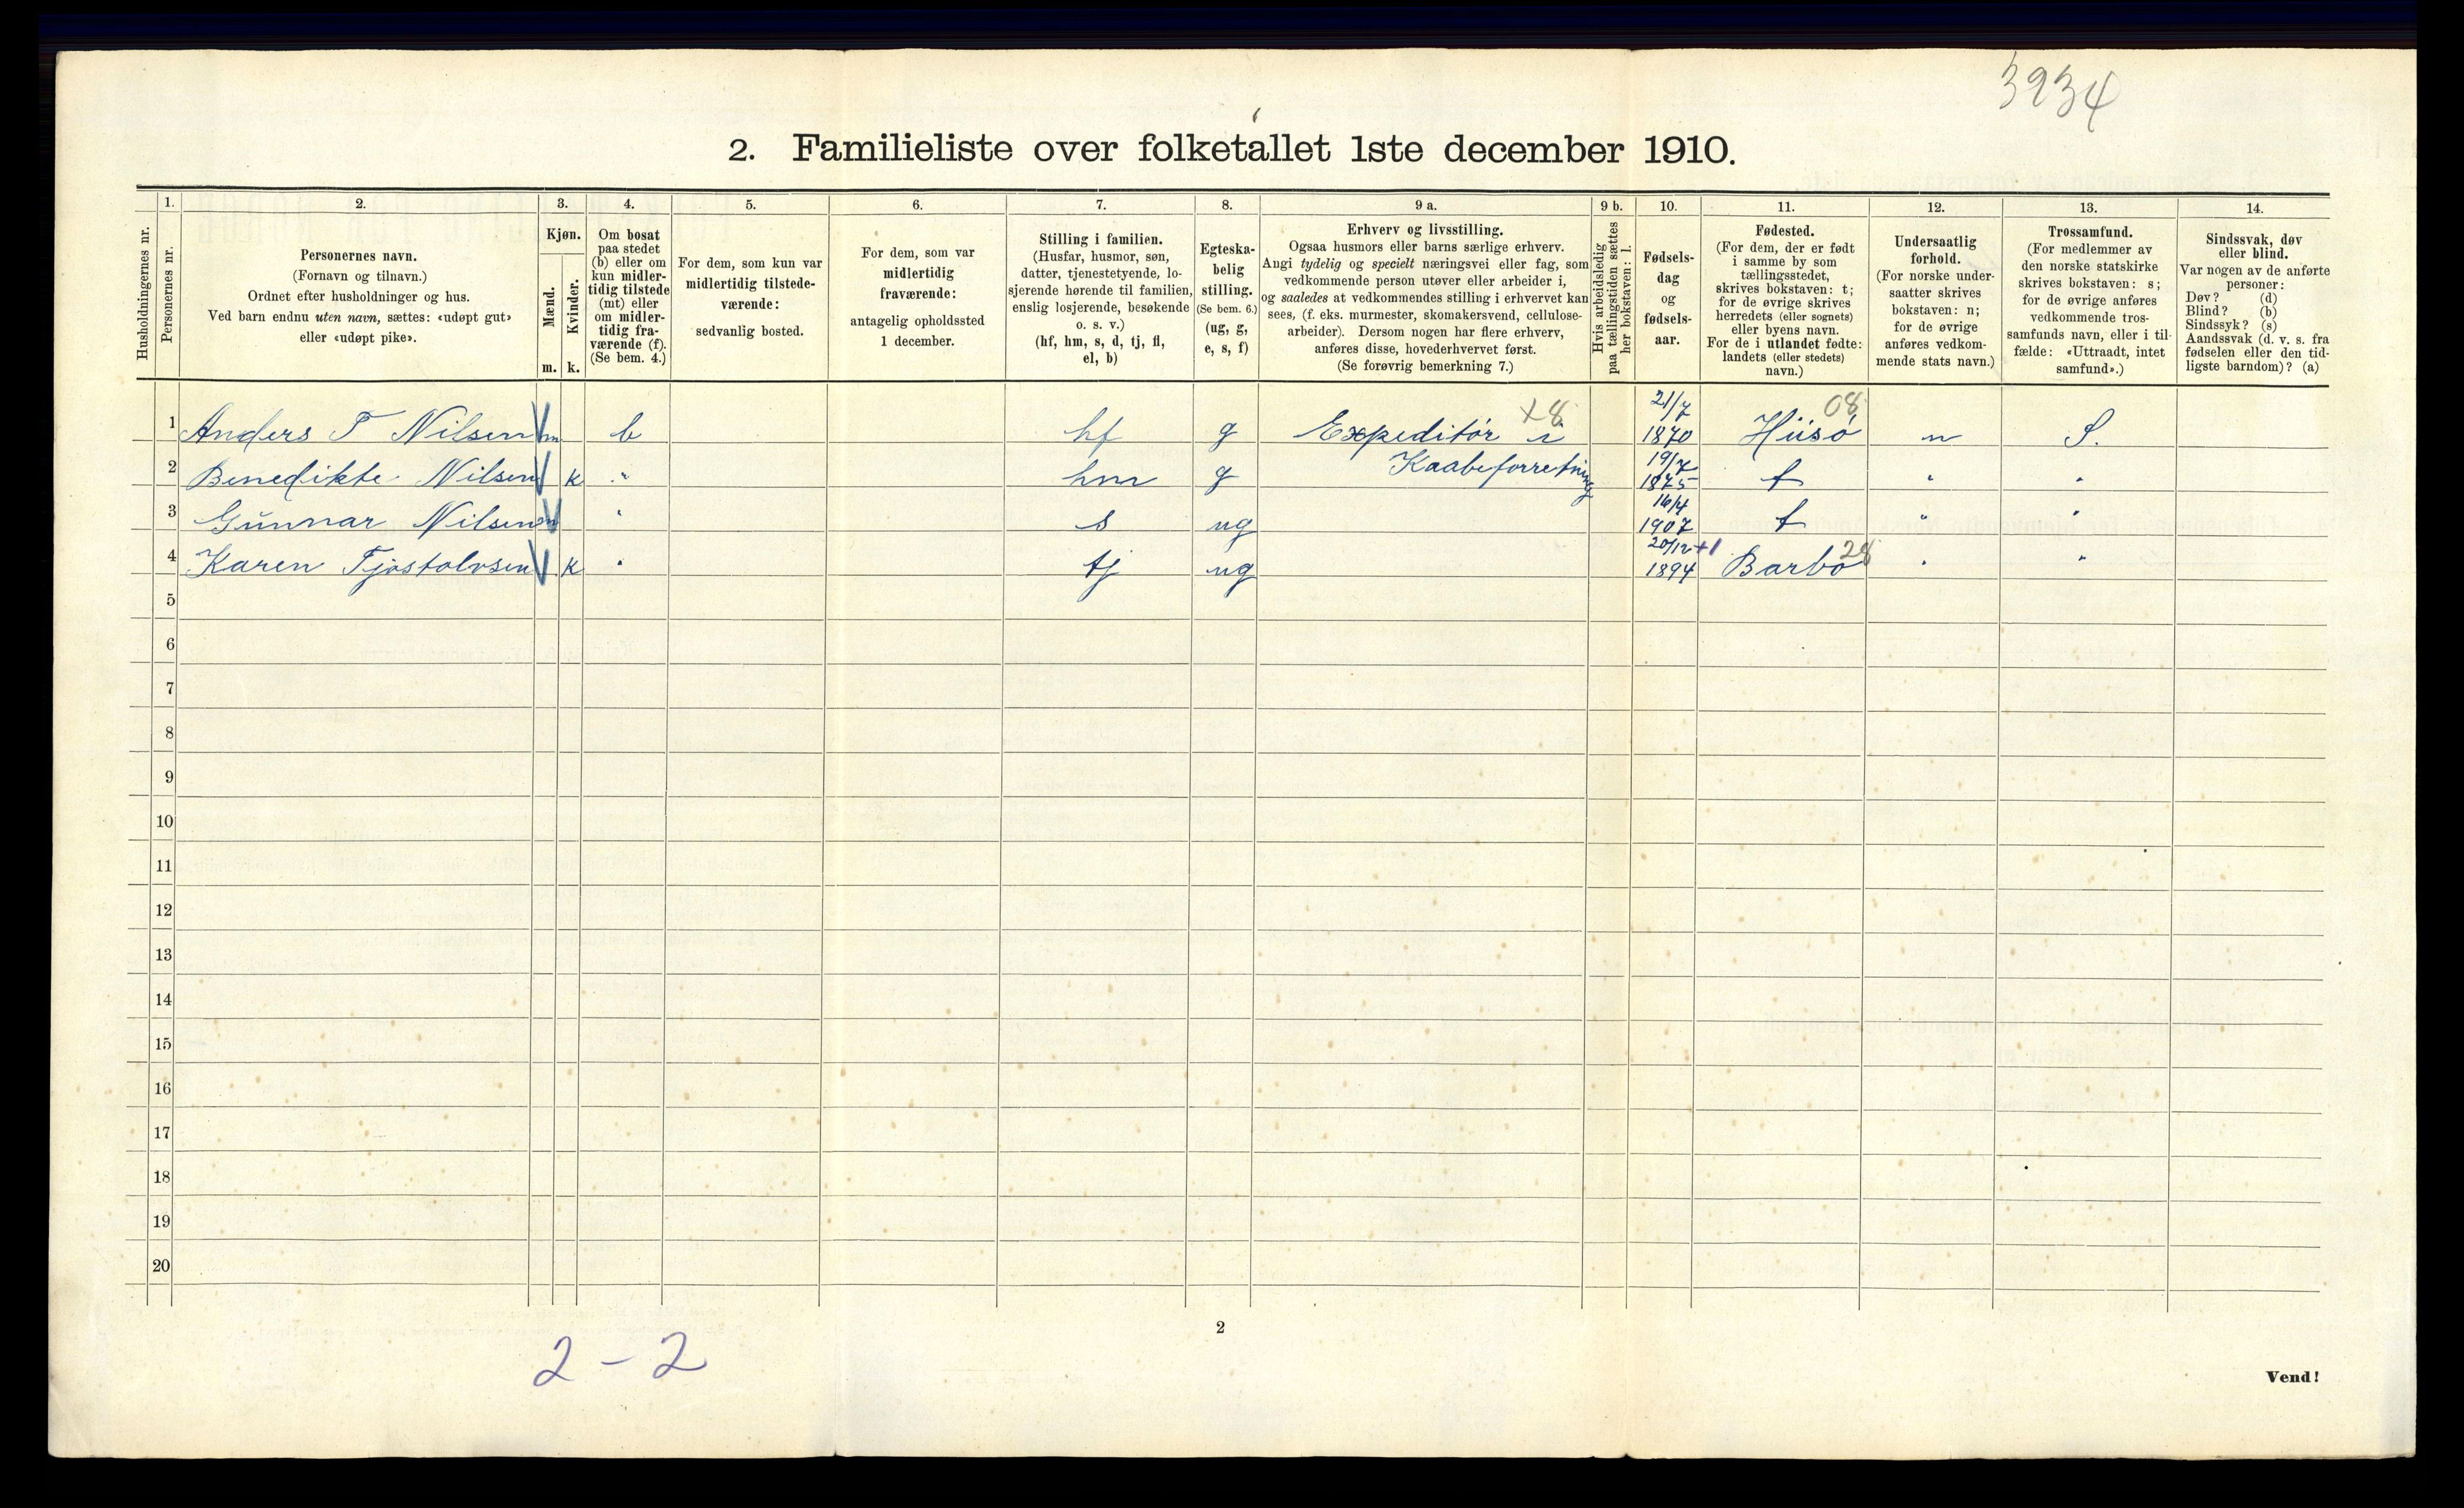 3934
2. Familieliste over folketallet 1ste december 1910.
1. 2. 3. 4. 5. 6. 7. 8. 9 a. 9 b. 10. 11. 12. 13. 14.
Husholdningernes nr.
Personernes nr.
Personernes navn.
(Fornavn og tilnavn.)
Ordnet efter husholdninger og hus.
Ved barn endnu uten navn, sættes: «udøpt gut»
eller «udøpt pike».
Kjøn.
Mænd.
m.
Kvinder.
k.
Om bosat
paa stedet
(b) eller om
kun midler-
tidig tilstede
(mt) eller
om midler-
tidig fra-
værende (f).
(Se bem. 4.)
For dem, som kun var
midlertidig tilstede-
værende:
sedvanlig bosted.
For dem, som var
midlertidig
fraværende:
antagelig opholdssted
1 december.
Stilling i familien.
(Husfar, husmor, søn,
datter, tjenestetyende, lo-
sjerende hørende til familien,
enslig losjerende, besøkende
o. s. v.)
(hf, hm, s, d, tj, fl,
el, b)
Egteska-
belig
stilling.
(Se bem. 6.)
(ug, g,
e, s, f)
Erhverv og livsstilling.
Ogsaa husmors eller barns særlige erhverv.
Angi tydelig og specielt næringsvei eller fag, som
vedkommende person utøver eller arbeider i,
og saaledes at vedkommendes stilling i erhvervet kan
sees, (f. eks. murmester, skomakersvend, cellulose-
arbeider). Dersom nogen har flere erhverv,
anføres disse, hovederhvervet først.
(Se forøvrig bemerkning 7.)
Hvis arbeidsledig
paa tællingstiden sættes
her bokstaven: l.
Fødsels-
dag
og
fødsels-
aar.
Fødested.
(For dem, der er født
i samme by som
tællingsstedet,
skrives bokstaven: t;
for de øvrige skrives
herredets (eller sognets)
eller byens navn.
For de i utlandet fødte:
landets (eller stedets)
navn.)
Undersaatlig
forhold.
(For norske under-
saatter skrives
bokstaven: n;
for de øvrige
anføres vedkom-
mende stats navn.)
Trossamfund.
(For medlemmer av
den norske statskirke
skrives bokstaven: s;
for de øvrige anføres
vedkommende tros-
samfunds navn, eller i til-
fælde: «Uttraadt, intet
samfund».)
Sindssvak, døv
eller blind.
Var nogen av de anførte
personer:
Døv? (d)
Blind? (b)
Sindssyk? (s)
Aandssvak (d. v. s. fra
fødselen eller den tid-
ligste barndom)? (a)
1 Anders T Nilsen m b hf g Expeditør i x8 21/7 1870 Hiisø 08 n S.
2 Benedikte Nilsen k " hm g Kaabeforretning 19/7 1875 t " "
3 Gunnar Nilsen m " s ug 16/4 1907 t " "
4 Karen Tjøstolvsen k " tj ug 20/12 +1 1894 Barbo 28 " "
5
6
7
8
9
10
11
12
13
14
15
16
17
18
19
20
2
2 - 2
Vend!